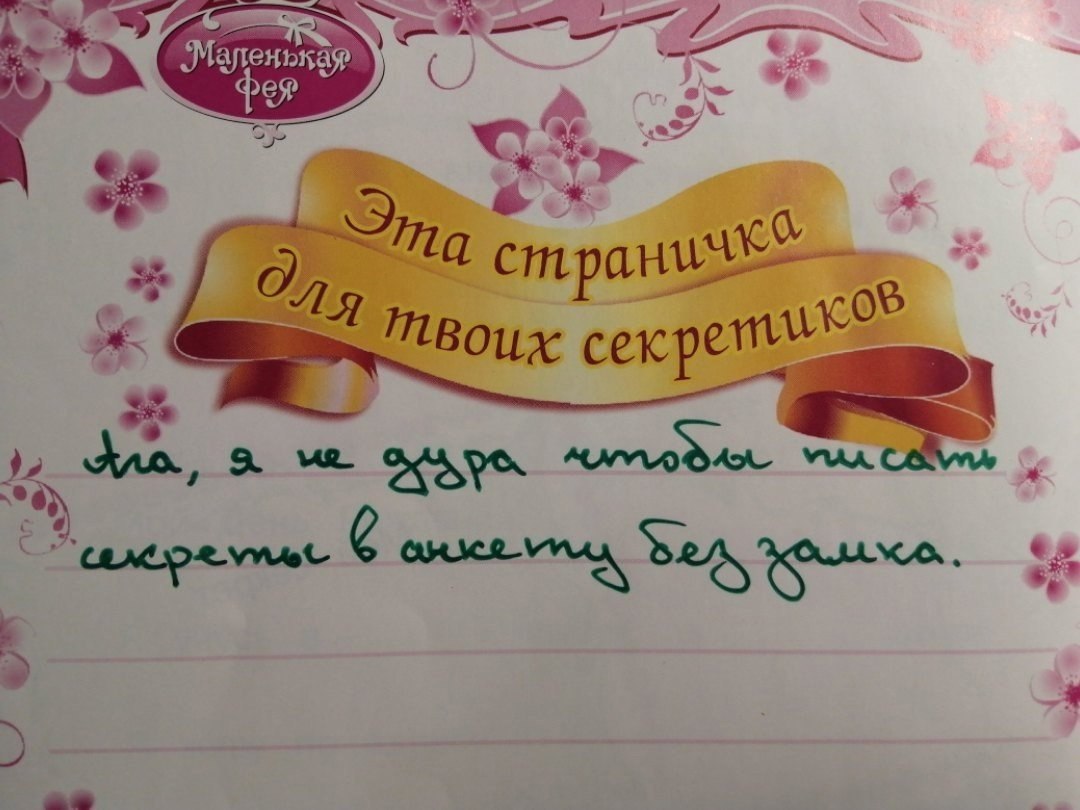 Маленькая
фея
Эта страничка
для твоих секретиков
Ага, я не дура чтобы писать
секреты в анкету без замка.